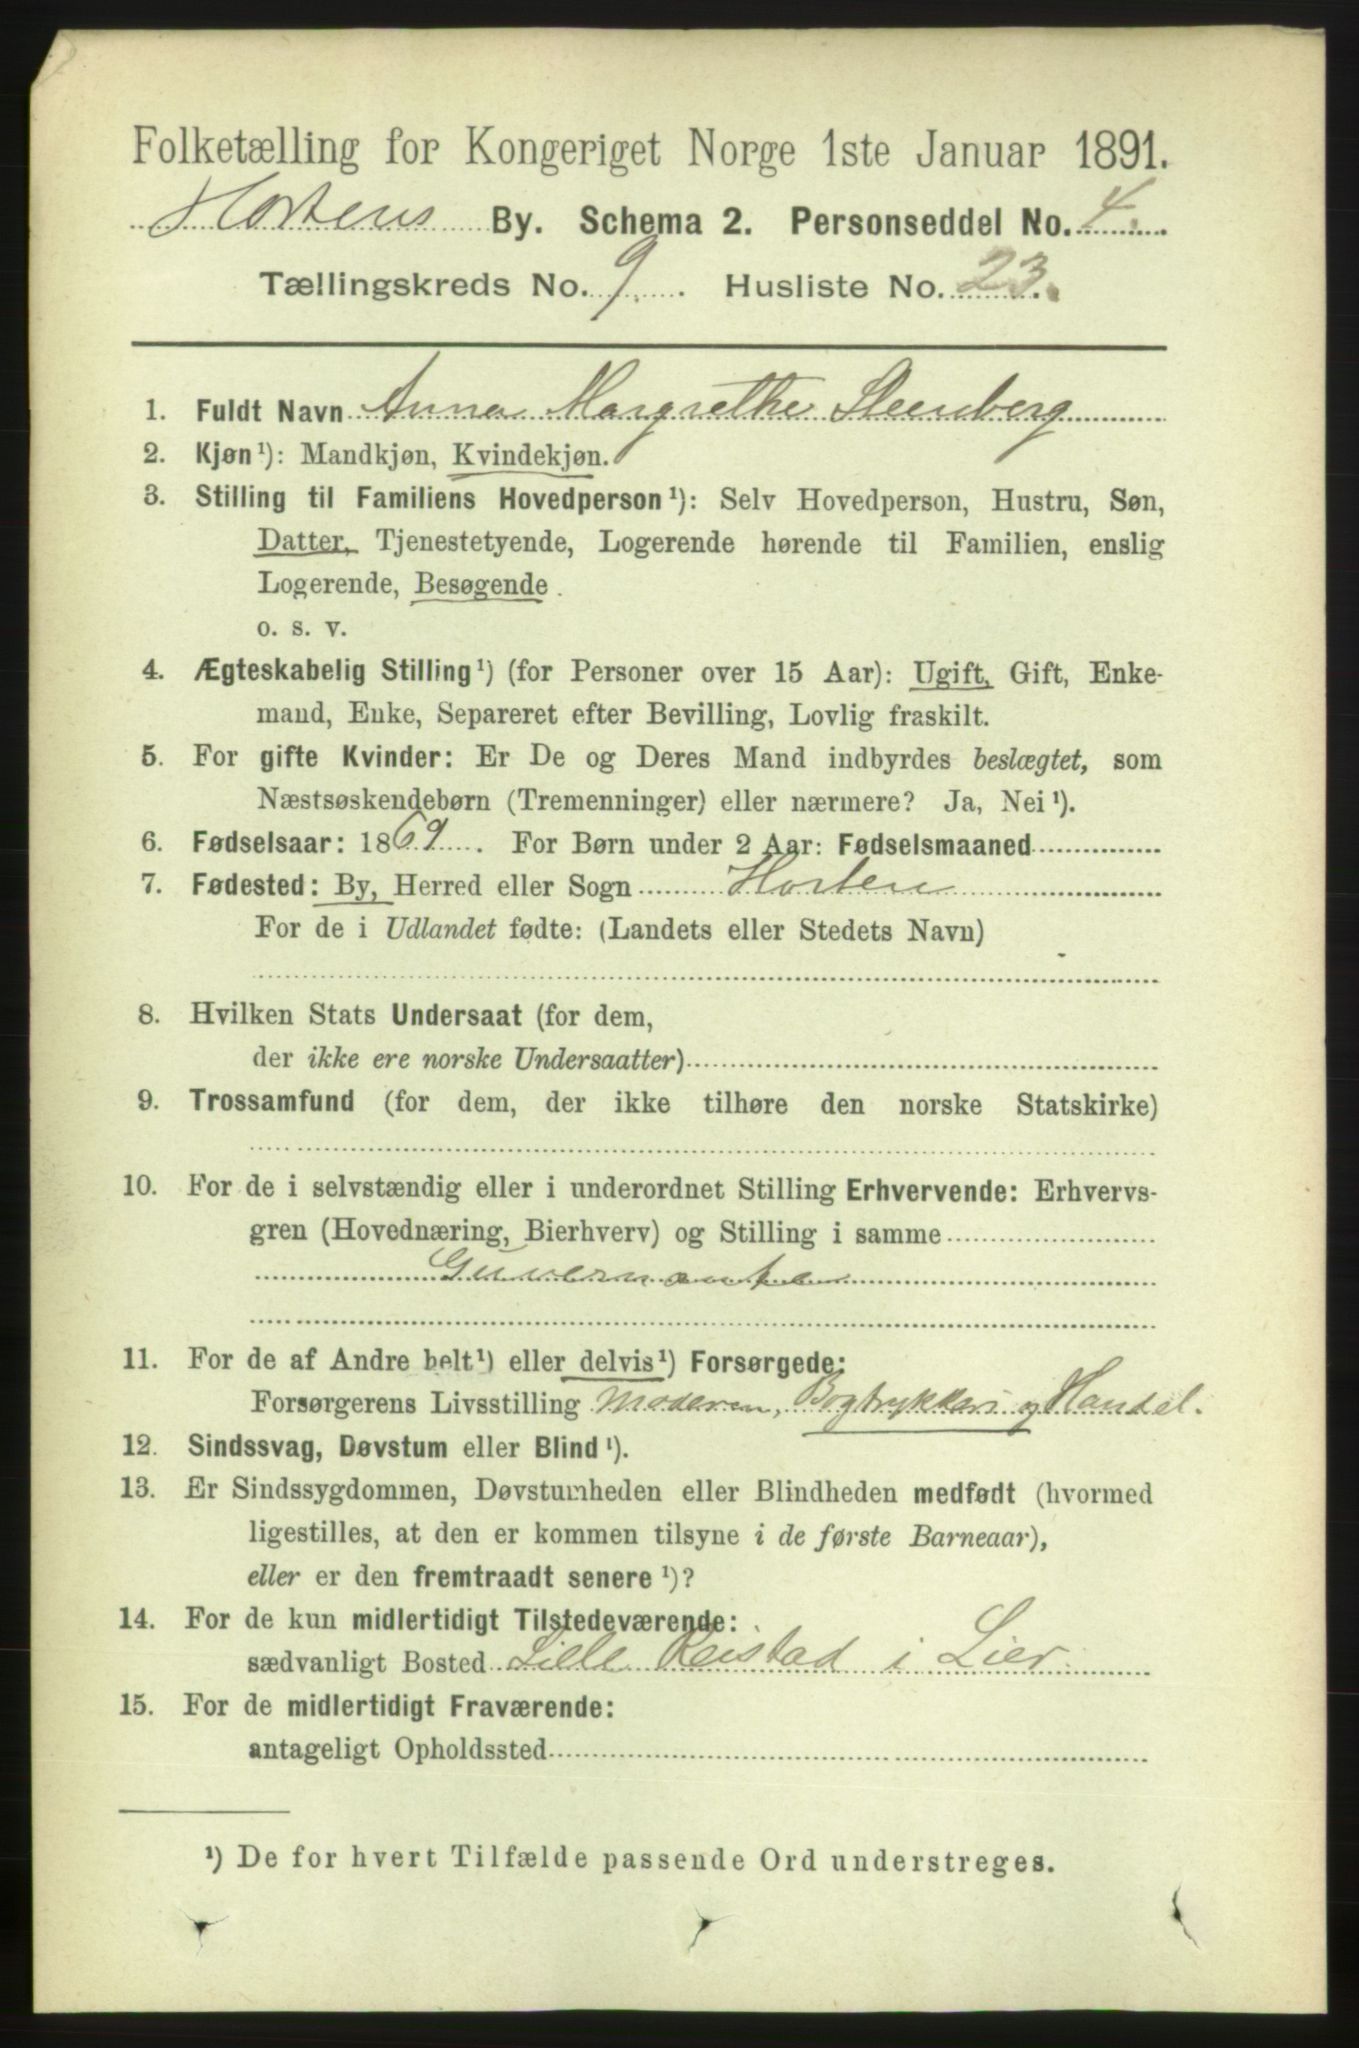 Folketælling for Kongeriget Norge 1ste Januar 1891.
Hortens By. Schema 2. Personseddel No. 4.
Tællingskreds No. 9. Husliste No. 23.
1. Fuldt Navn Anna Margrethe Steenberg
2. Kjøn¹): Mandkjøn, Kvindekjøn.
3. Stilling til Familiens Hovedperson¹): Selv Hovedperson, Hustru, Søn,
Datter, Tjenestetyende, Logerende hørende til Familien, enslig
Logerende, Besøgende.
o. s. v.
4. Ægteskabelig Stilling¹) (for Personer over 15 Aar): Ugift, Gift, Enke-
mand, Enke, Separeret efter Bevilling, Lovlig fraskilt.
5. For gifte Kvinder: Er De og Deres Mand indbyrdes beslægtet, som
Næstsøskendebørn (Tremenninger) eller nærmere? Ja, Nei¹).
6. Fødselsaar: 1869. For Børn under 2 Aar: Fødselsmaaned
7. Fødested: By, Herred eller Sogn Horten
For de i Udlandet fødte: (Landets eller Stedets Navn)
8. Hvilken Stats Undersaat (for dem,
der ikke ere norske Undersaatter)
9. Trossamfund (for dem, der ikke tilhøre den norske Statskirke)
10. For de i selvstændig eller i underordnet Stilling Erhvervende: Erhvervs-
gren (Hovednæring, Bierhverv) og Stilling i samme
Guvernante
11. For de af Andre helt¹) eller delvis¹) Forsørgede:
Forsørgerens Livsstilling Moderen, Bogtrykkeri og Handel.
12. Sindssvag, Døvstum eller Blind¹).
13. Er Sindssygdommen, Døvstumheden eller Blindheden medfødt (hvormed
ligestilles, at den er kommen tilsyne i de første Barneaar),
eller er den fremtraadt senere¹)?
14. For de kun midlertidigt Tilstedeværende:
sædvanligt Bosted Lille Reistad i Lier
15. For de midlertidigt Fraværende:
antageligt Opholdssted
¹) De for hvert Tilfælde passende Ord understreges.